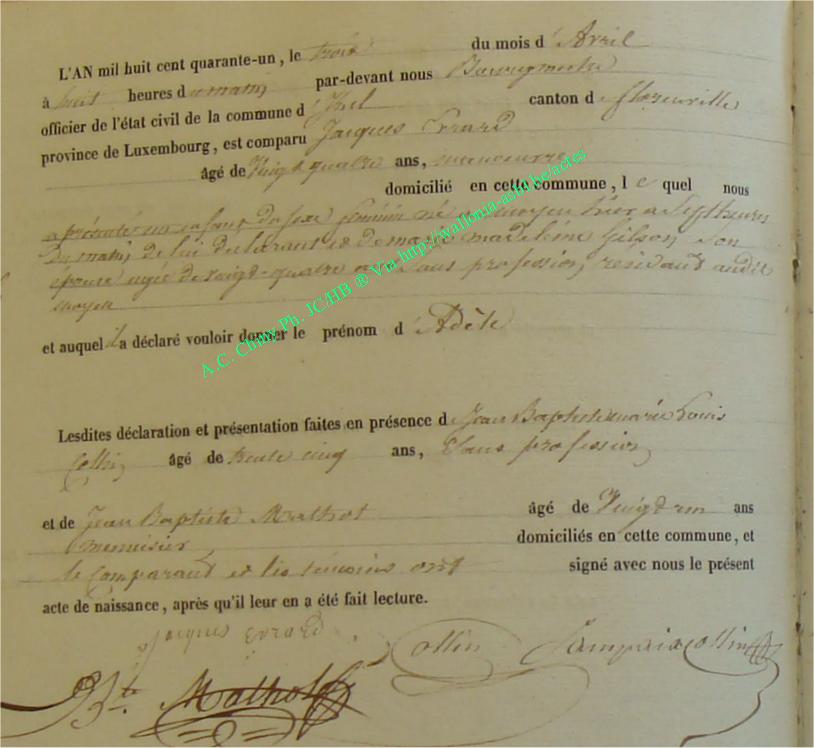 L'AN mil huit cent quarante-un, le trois du mois d'Avril
à huit heures du matin, par-devant nous Bourgmestre
officier de l'état civil de la commune d'Izel canton de florenville
province de Luxembourg, est comparu Jacques Evrard
âgé de Vingt quatre ans, manoeuvre
domicilié en cette commune, lequel nous
a présenté un enfant du sexe féminin né à moyen hier a Sept heures
Du matin, de lui déclarant et de marie madeleine Gilson, Son
épouse agée de vingt-quatre ans Sans profession, residant audit
moyen
et auquel il a déclaré vouloir donner le prénom d'Adèle
Lesdites déclaration et présentation faites en présence de Jean Baptiste marie Louis
Collin, âgé de trente cinq ans, Sans profession,
et de Jean Baptiste Mathot âgé de Vingt un ans
menuisier, domiciliés en cette commune, et
le Comparant et les témoins ont signé avec nous le présent
acte de naissance, après qu'il leur en a été fait lecture.
Jacques evrard Collin collin
Bte. Mathot
A.C. Chiny Ph. JC/HB ® Via http://wallonia-asbl.be/actes